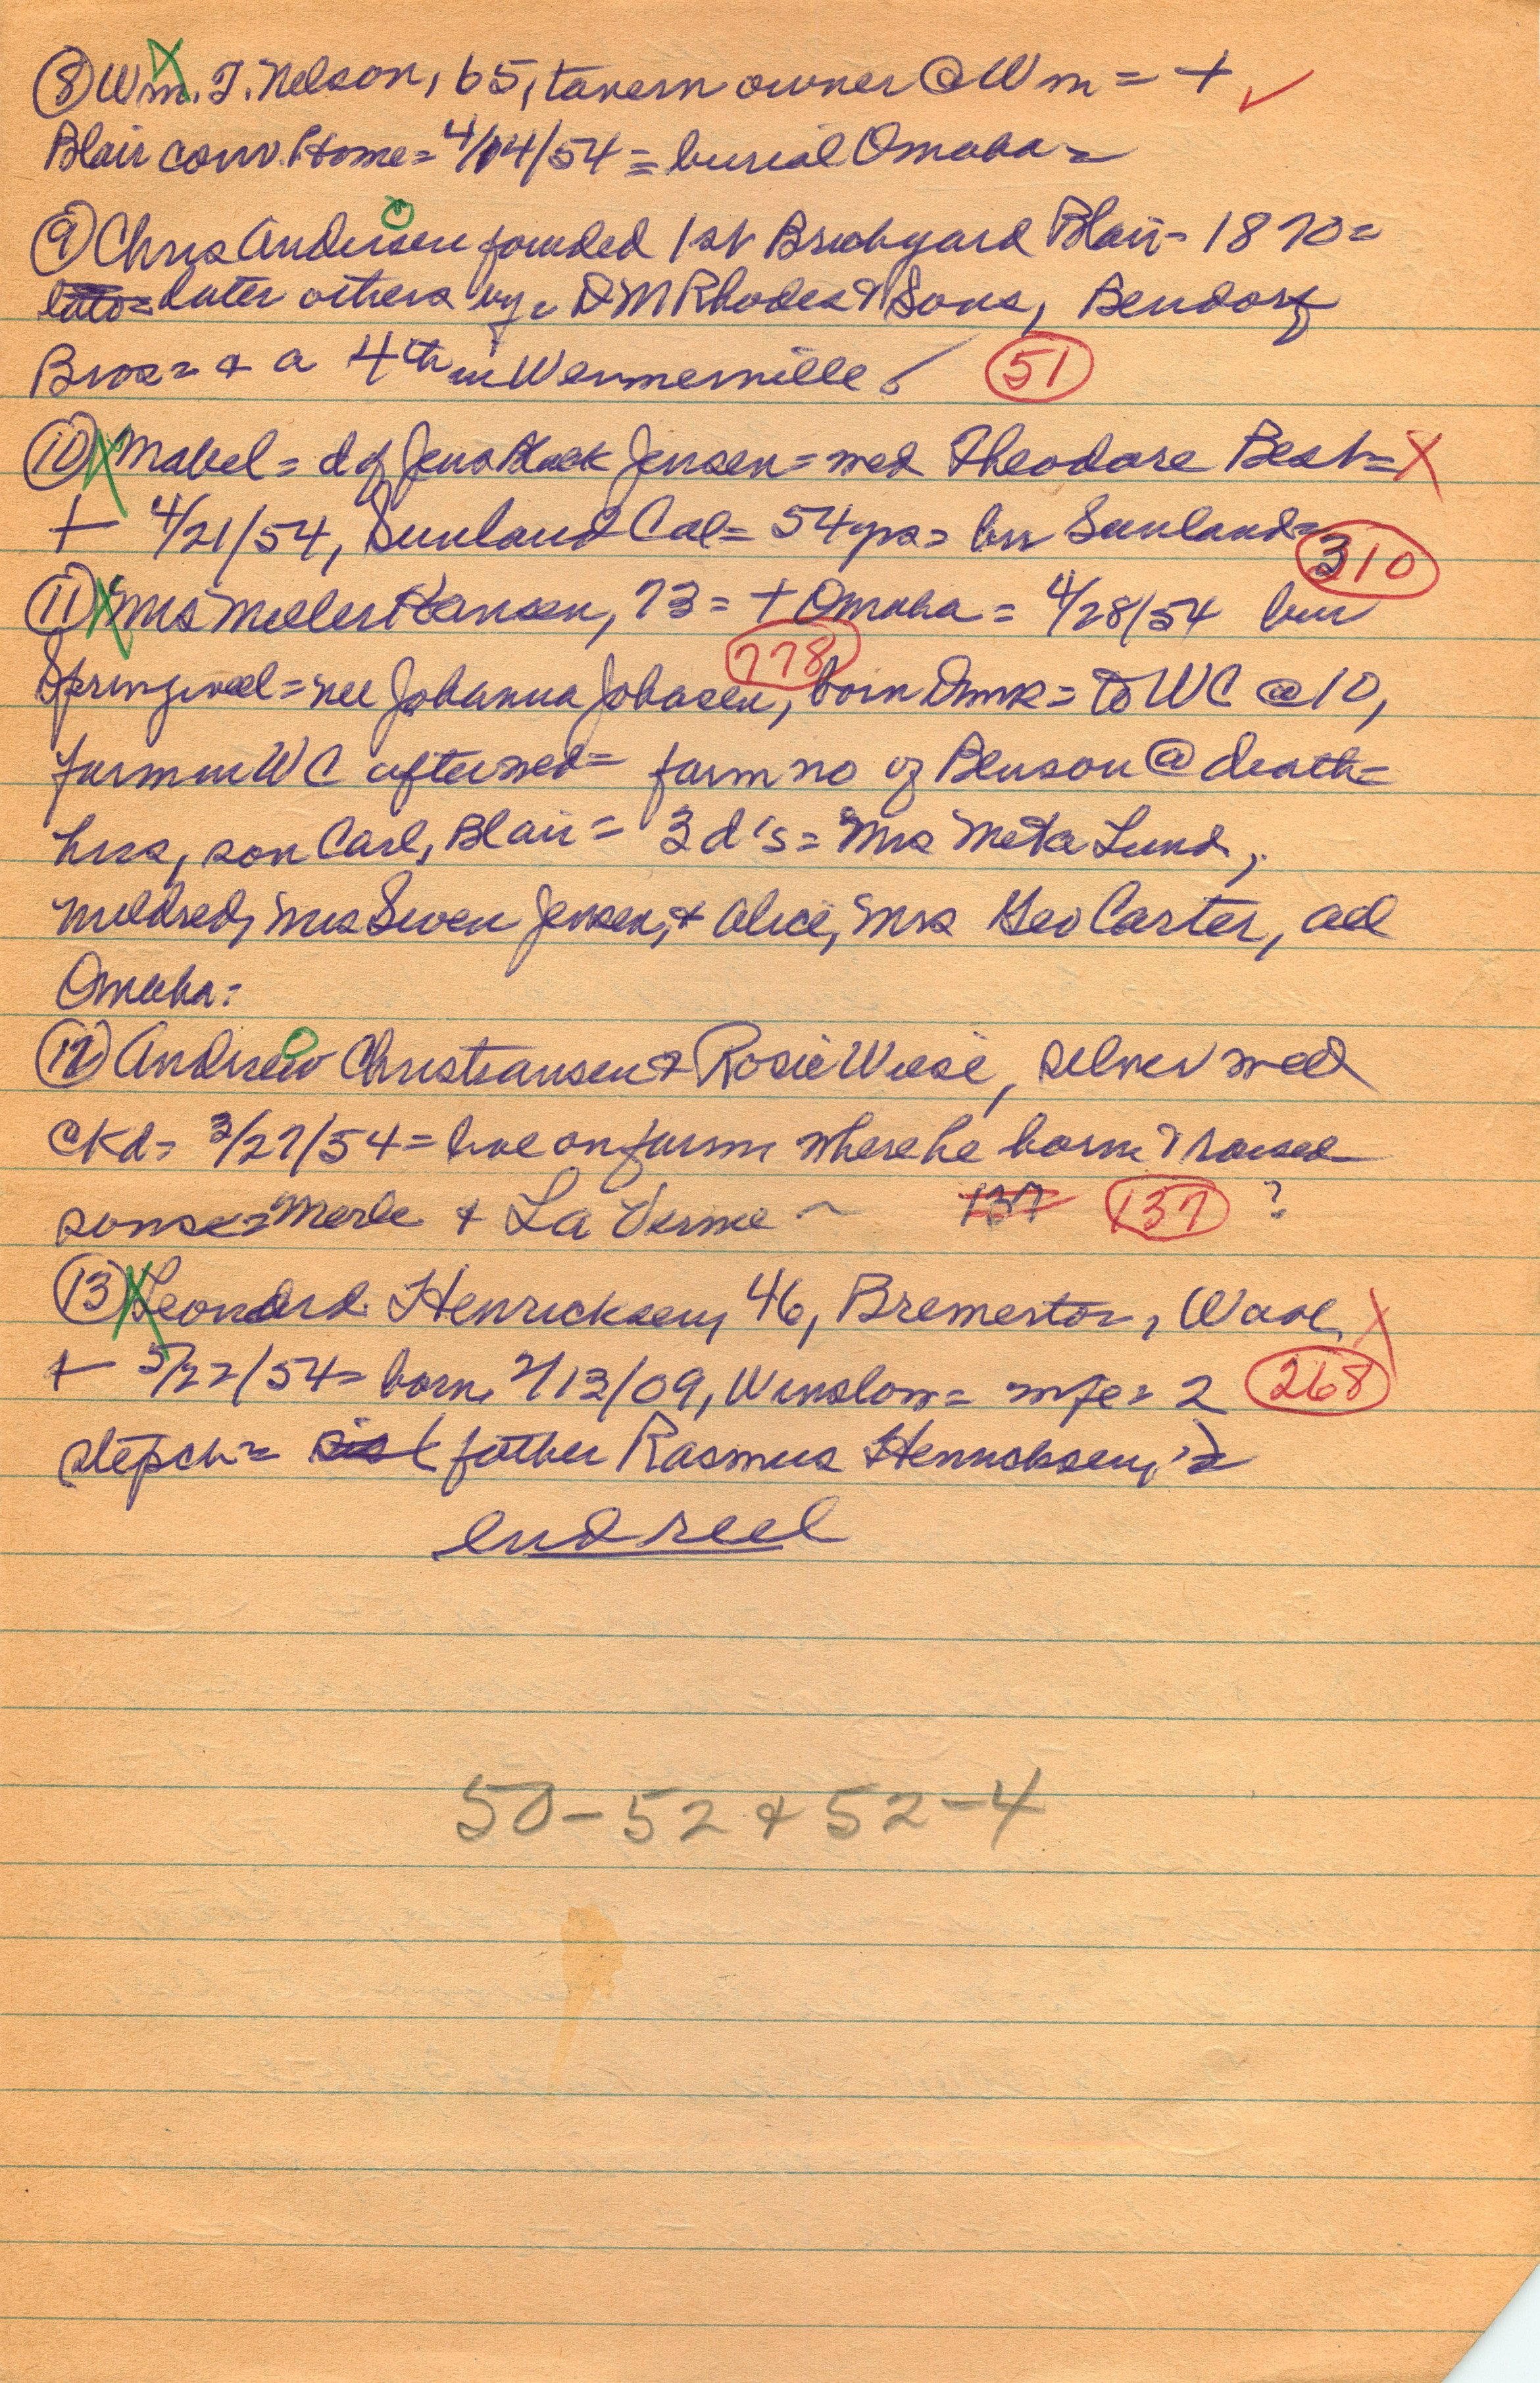 ⑧ Wm. T. Nelson, 65, tavern owner @ Wm = +
Blair conv. Home = 4/14/54 = burial Omaha =
⑨ Chris Andersen founded 1st Brickyard Blair - 1870 =
later others by D M Rhodes & Sons, Bendorf
Bros = & a 4th in 51
⑩ Mabel = d of Jens Black Jensen = wed Theodore Best =
+ 4/21/54, Sunland Cal = 54 yrs = bur Sunland = 310
⑪ Mrs Hansen, 73 = + Omaha = 4/28/54 bur
778
Springwell = nee Johanna Johasen, born Dmk = to WC @ 10,
farm in WC after wed = farm no of Benson @ death =
hus, son Carl, Blair = 3 d's = Mrs Meta Lund,
Mildred, Mrs Swen Jensen, & Alice, Mrs Geo Carter, all
Omaha =
⑫ Andrew Christiansen & Rosie Wiese, silver wed
ckd = 3/27/54 = live on farm where he born & raised
sons = Merle & La Verne ~ 137 137 ?
⑬ Leonard Henricksen, 46, Bremerton, Wash,
+ 5/22/54 = born 2/13/09, Winslow = wife = 2 268
stepch = father Rasmus Henricksen,
end reel
50-52 & 52-4